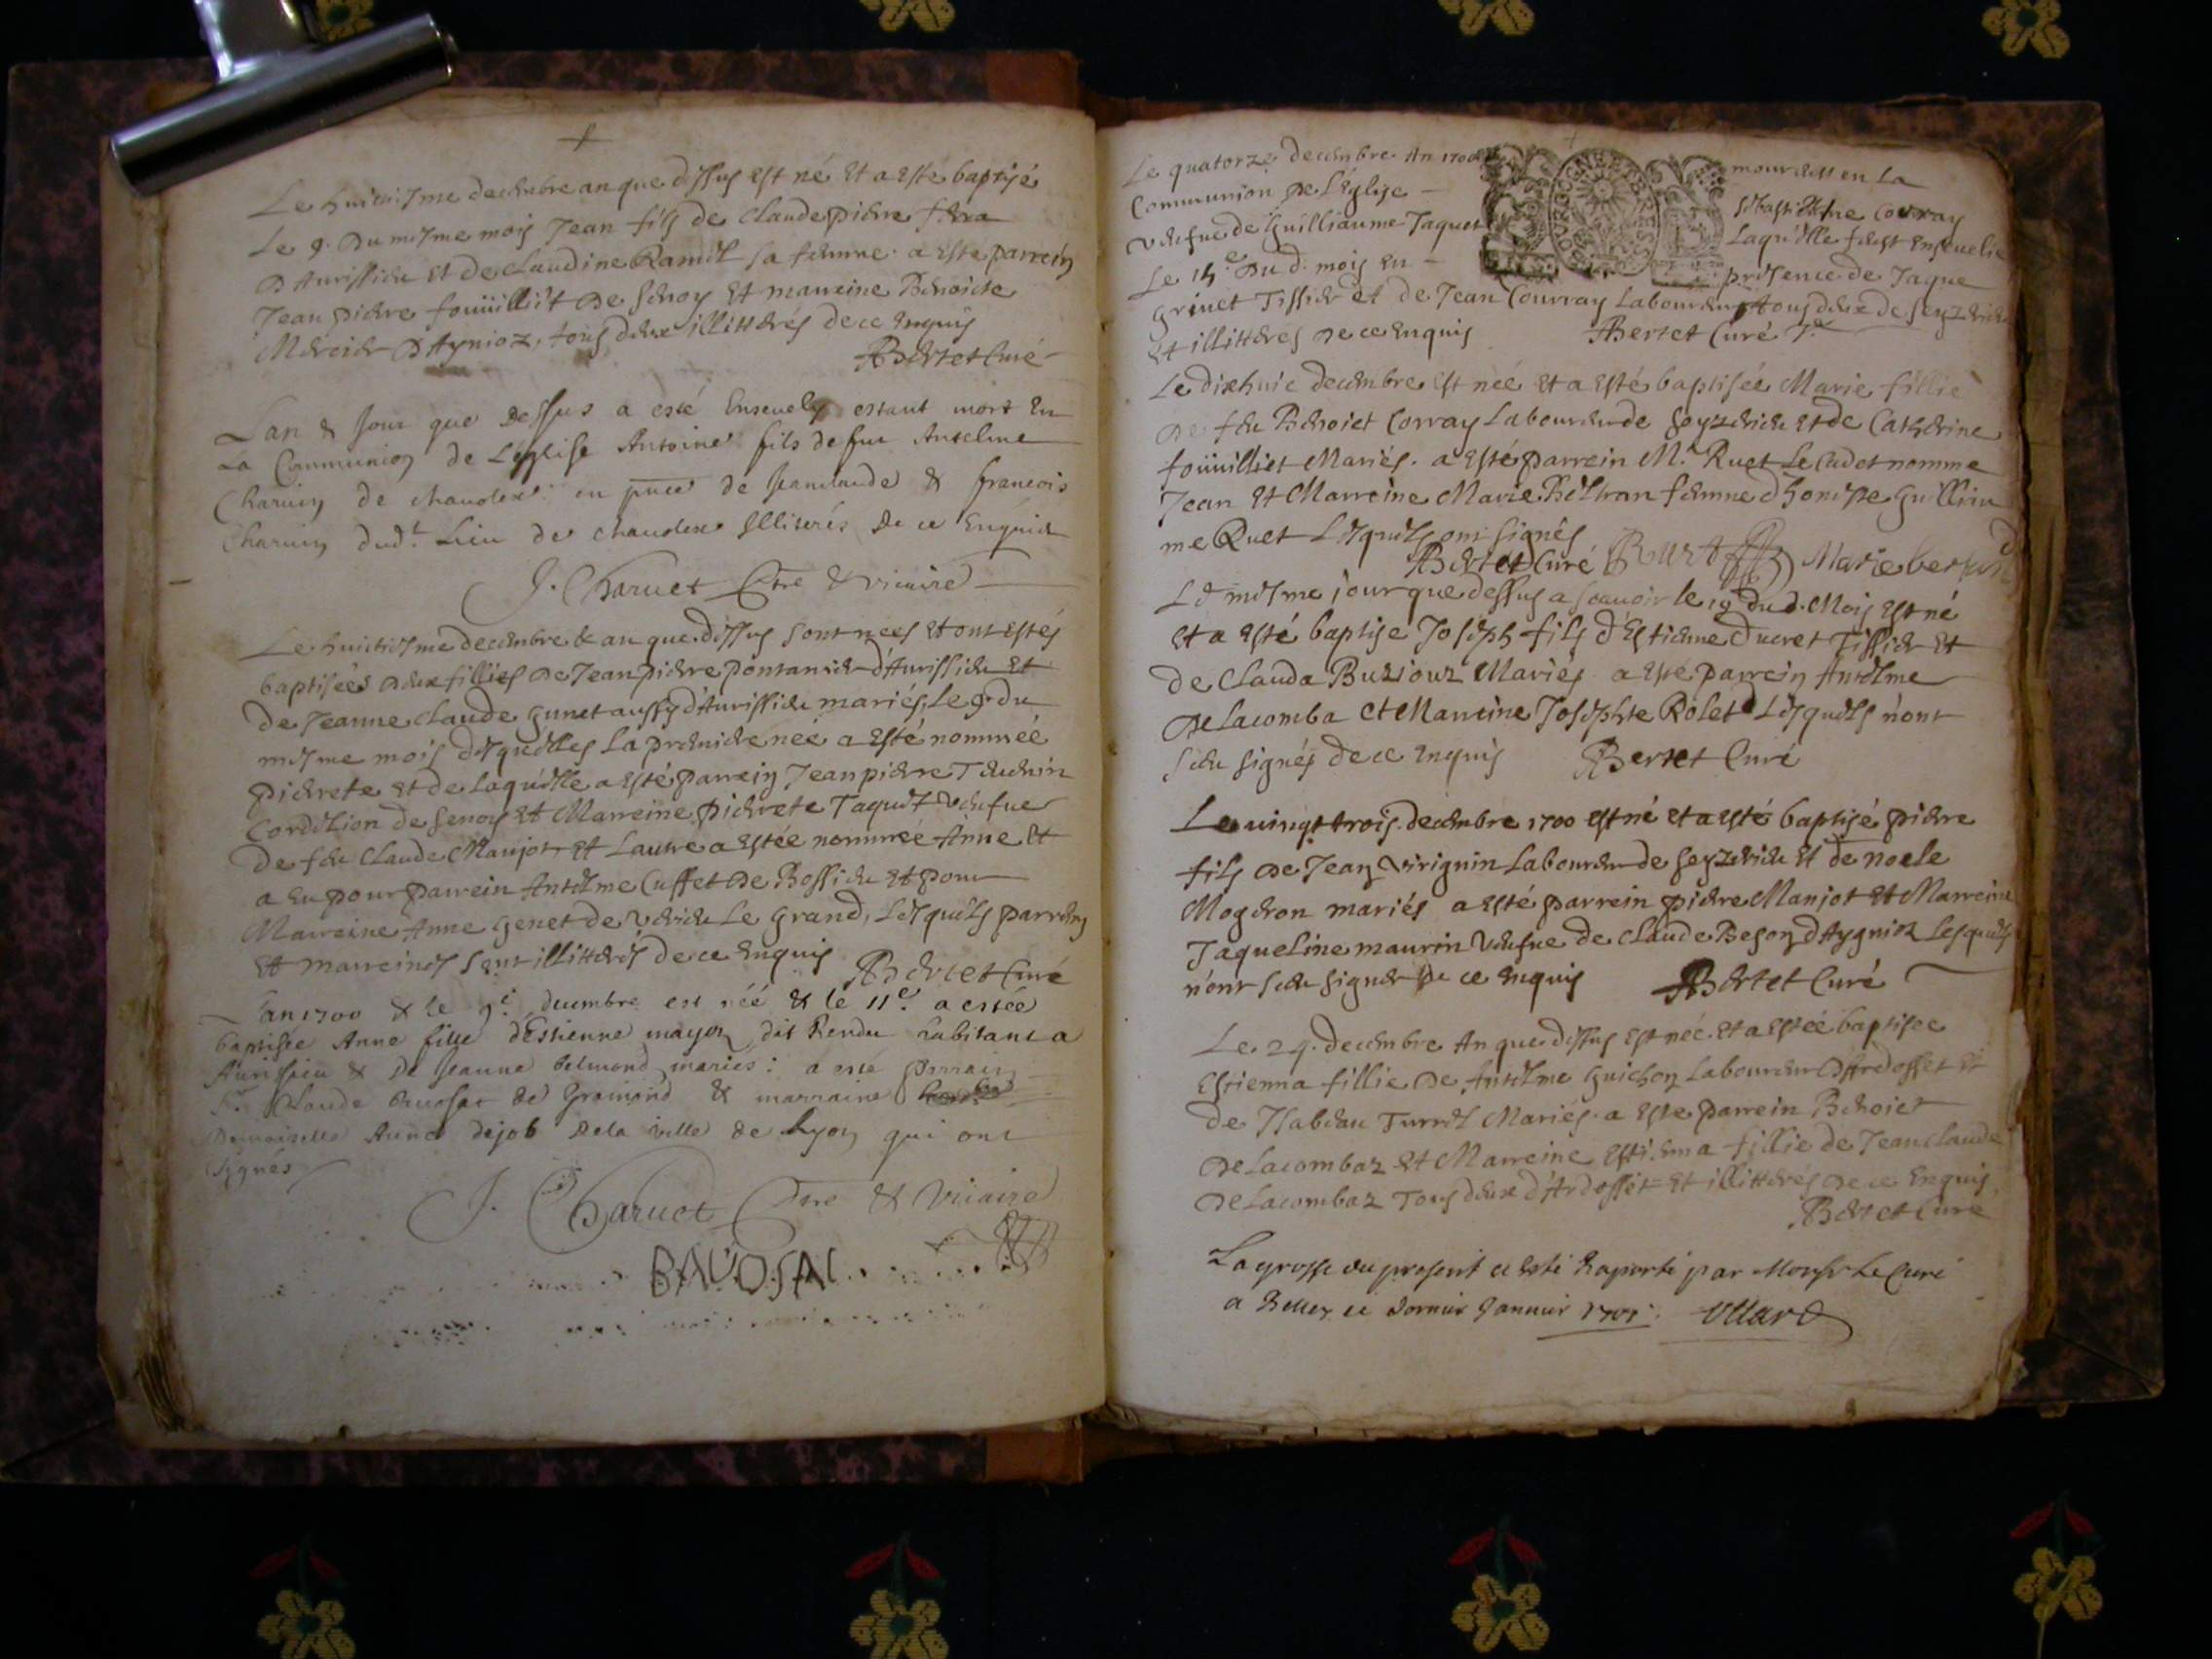 Le huictiesme decembre an que dessus est né et a esté baptisé
Le 9. du mesme mois Jean fils de Claude pierre
d'Aurissieu et de Claudine Ramel sa femme. a esté parrein
Jean pierre foüilliet de Senoy et marreine Benoicte
Mercier d'Aynioz, tous deux illitterés de ce enquis
Bertet Curé
Lan & jour que dessus a esté Ensevely estant mort en
La Communion de Léglise Antoine fils de fue Antelme
Charuin de chaudex en pnce de Jeanclaude & francois
Charuin dud.t Lieu de chaudex Illiterés de ce Enquid
J. Charuet ptre & vicaire
Le huictiesme decembre & an que dessus sont nees et ont estés
baptisées deux fillies de Jean pierre pontannier d'Aurissieu et
de Jeanne Claude Gunet aussy d'Aurissieu mariés, Le 9. du
mesme mois desquelles La premiere née a esté nommée
pierrete et de Laquelle a esté parrein Jean pierre
Cordelion de Senoy et Marreine pierrete Taquet vefue
de feu Claude Manjot, et Lautre a estée nommée Anne et
a eu pour parrein Antelme Cuffet de Bossieu et pour
Marreine Anne Genet de Vericu Le Grand, Lesquels parreins
et marreines sont illitterés de ce enquis
Bertet Curé
Lan 1700 & le 9.e decembre est née & le 11e. a estée
baptisée Anne fille d'Estienne mayon dit Rendu habitant a
Aurissieu & de Jeanne belmond mariés: a esté parrain
Sr. Claude Bauosat de Gramond & marraine
Demoiselle Anne dejob de la ville de Lyon qui ont
signés
J. Charuet ptre & vicaire
BAVOSAT
Le quatorze decembre An 1700 mourust en La
Communion de L'Église Sebastienne Courray
vefue de Guilliaume Taquet Laquelle feust Enseuelie
Le 15.e du d. mois en presence de Jaque
Grinet Tissier et de Jean Courray Laboureur tous deux de Seyzerieu
et illitteres de ce enquis Bertet Curé
Le dixhuic decembre est née et a esté baptisée Marie fillie
de feu Benoiet Corray Laboureur de Seyzerieu et de Catherine
foüilliet Mariés. a esté parrein M.r Ruet Le Cadet nomme
Jean et Marreine Marie Beltran femme d'honeste Guilliau
me Ruet Lesquels ont signés
Bertet Curé Ruet Marie bertrand
Le mesme jour que dessus a scauoir le 19 du d. Mois est né
et a esté baptise Joseph fils d'Estienne Ducret Tissier et
de Clauda Buriouz Mariés a esté parrein Antelme
de Lacomba et Marreine Josephte Rolet Lesquels n'ont
sceu signés de ce enquis Bertet Curé
Le vingt trois decembre 1700 est né et a esté baptisé pierre
fils de Jean Virignin Laboureur de Seyzerieu et de noele
Mogeron mariés a esté parrein pierre Manjot et Marreine
Jaqueline maurin Vefue de Claude Beson d'Aygnioz Lesquels
n'ont sceu signer de ce enquis Bertet Curé
Le 24. decembre An que dessus est née et a estée baptisee
Estienna fillie de Antelme Guichon Laboureur d'Ardosset et
de Isabeau Turrel Mariés. a esté parrein Benoiet
de Lacombaz et Marreine Estienna fillie de Jean Claude
de Lacombaz Tous deux d'Ardosset et illitterés de ce enquis
Bertet Curé
La grosse du present a esté Raporté par Monsr Le Curé
a Belley ce dernier Januier 1701. Vllard